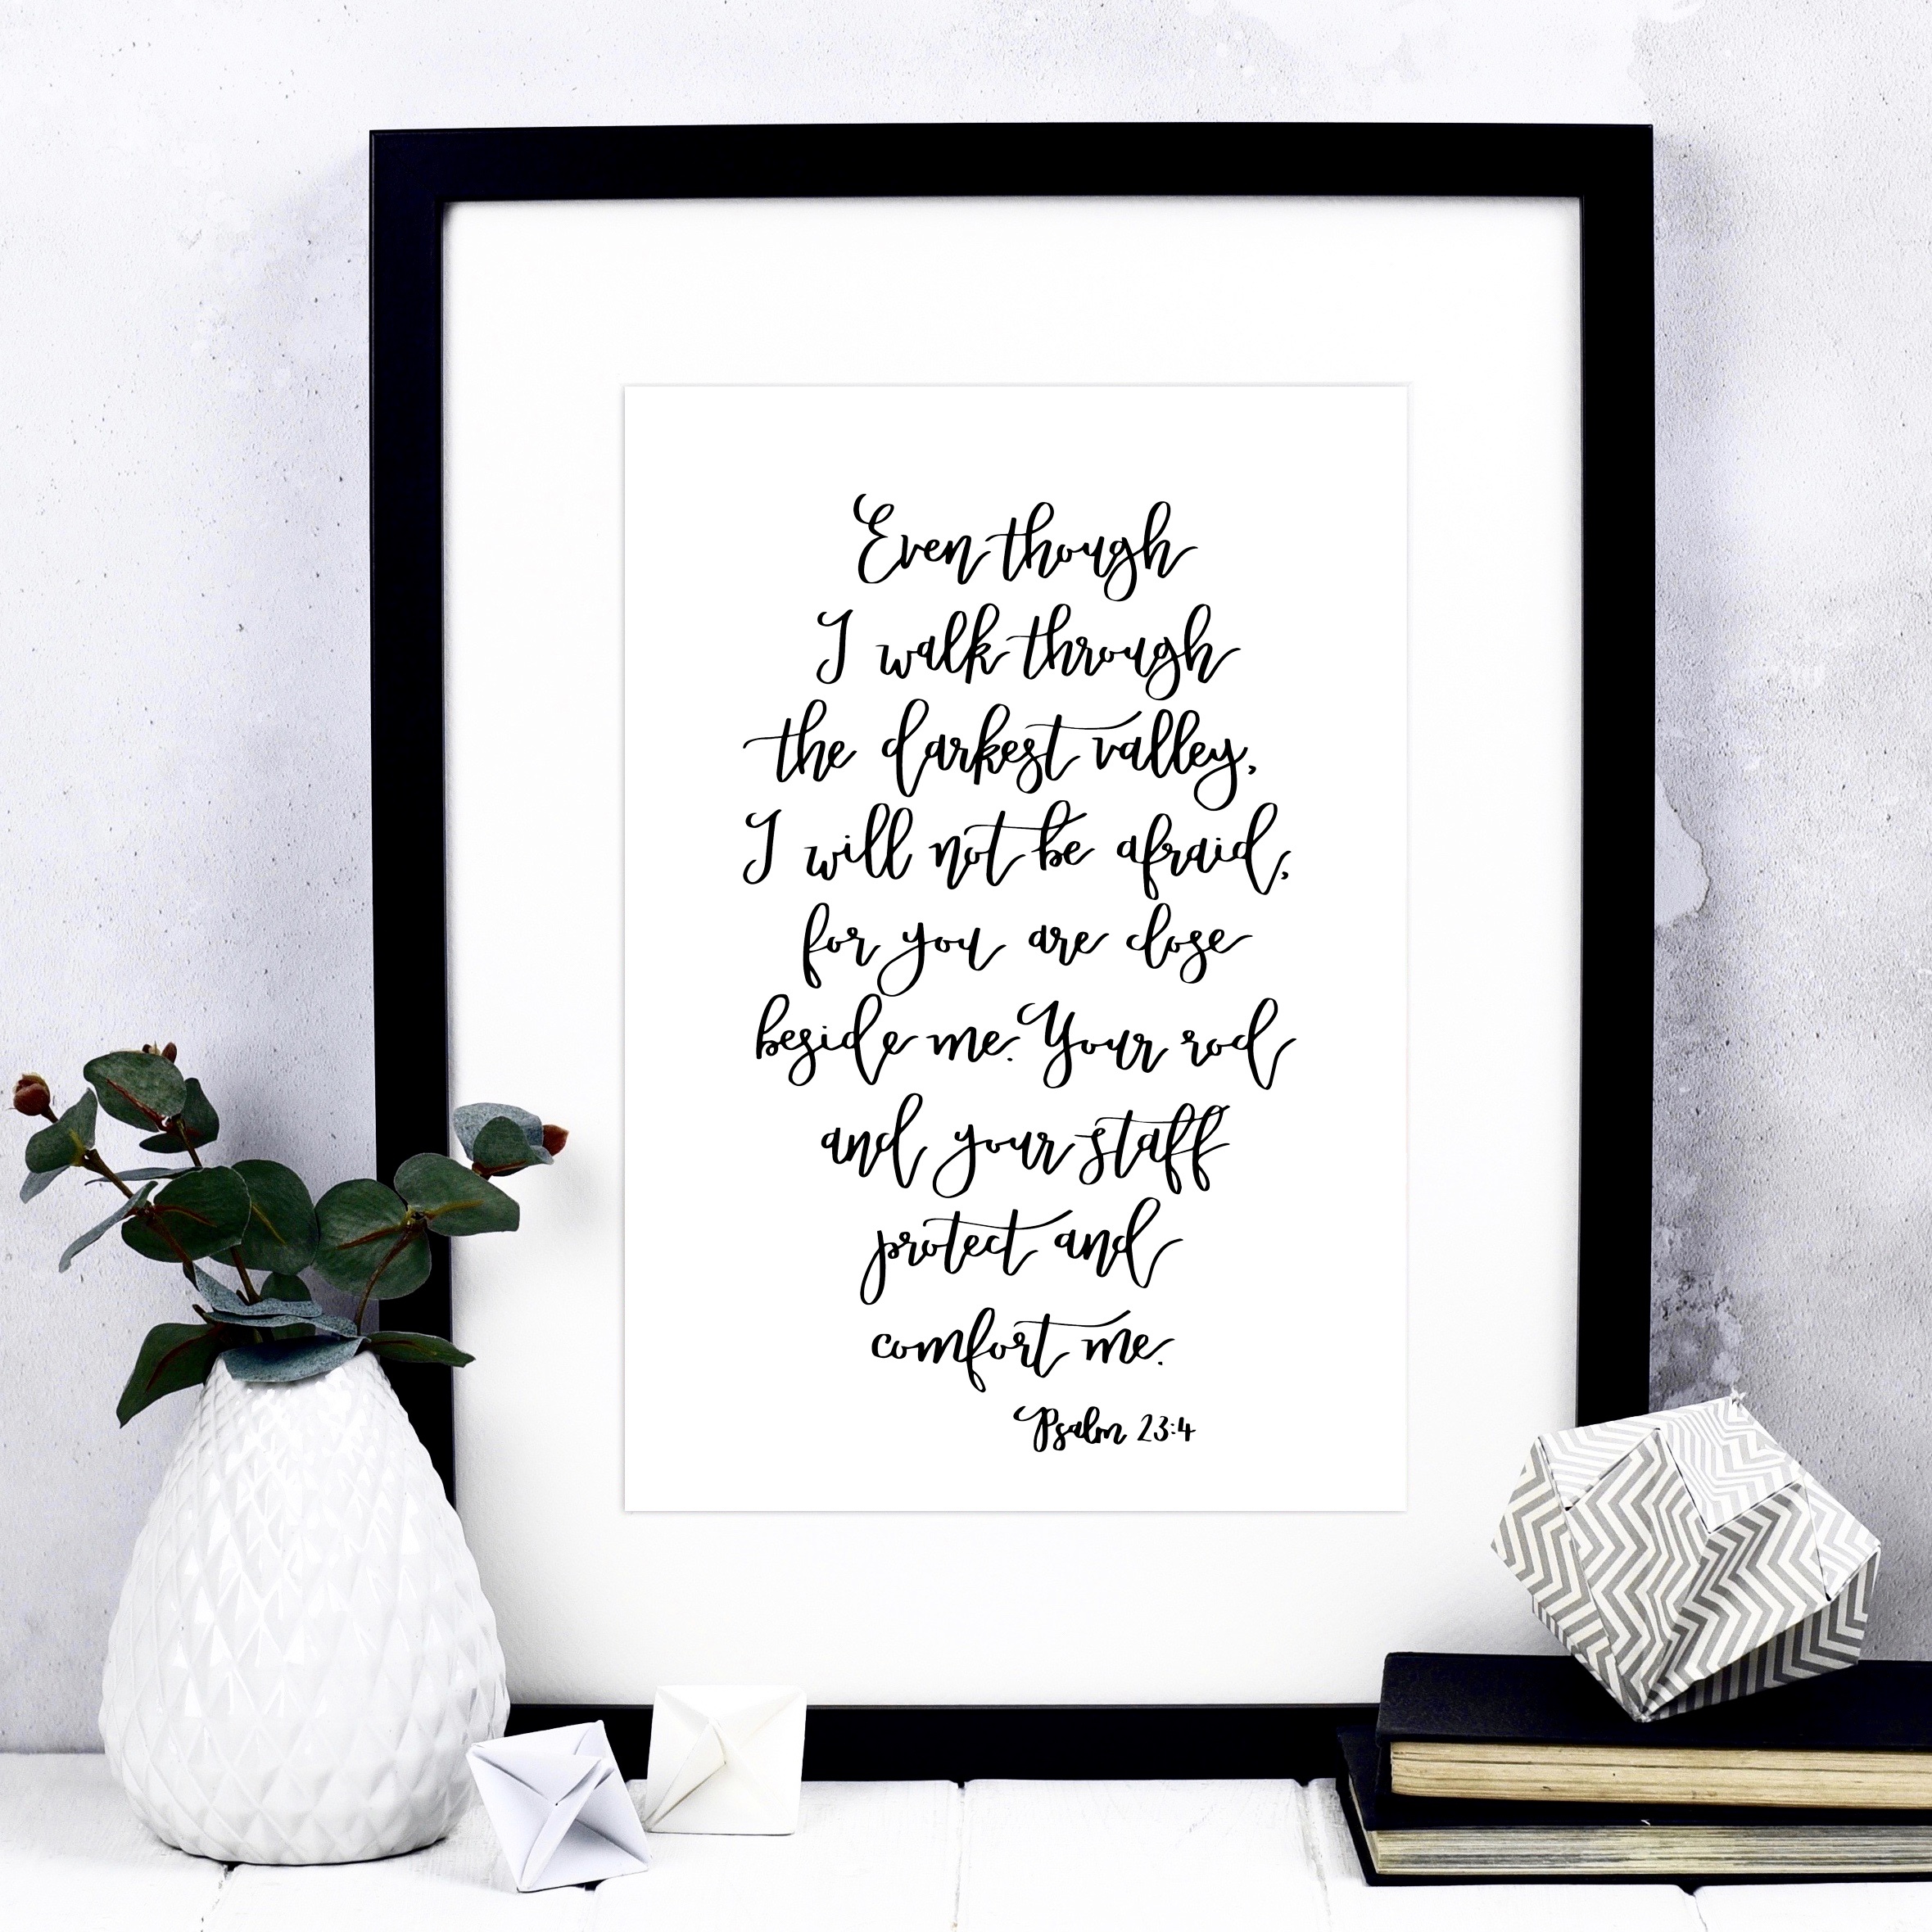 Even though
I walk through
the darkest valley,
I will not be afraid,
for you are close
beside me. Your rod
and your staff
protect and
comfort me.
Psalm 23:4